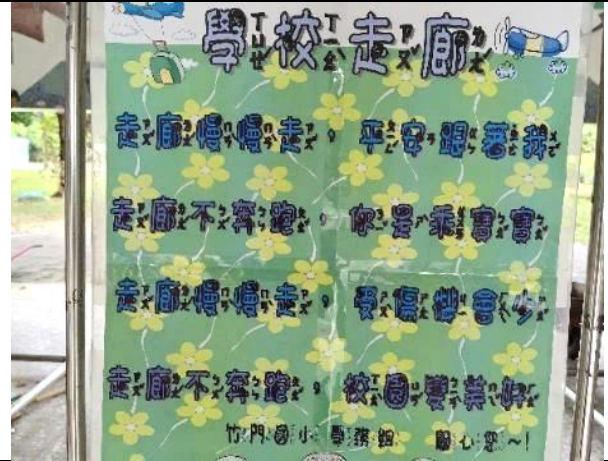 學校走廊
走廊慢慢走，平安跟著我
走廊不奔跑，你是乖寶寶
走廊慢慢走，受傷機會少
走廊不奔跑，校園變美好
竹門國小 學務組 關心您~!